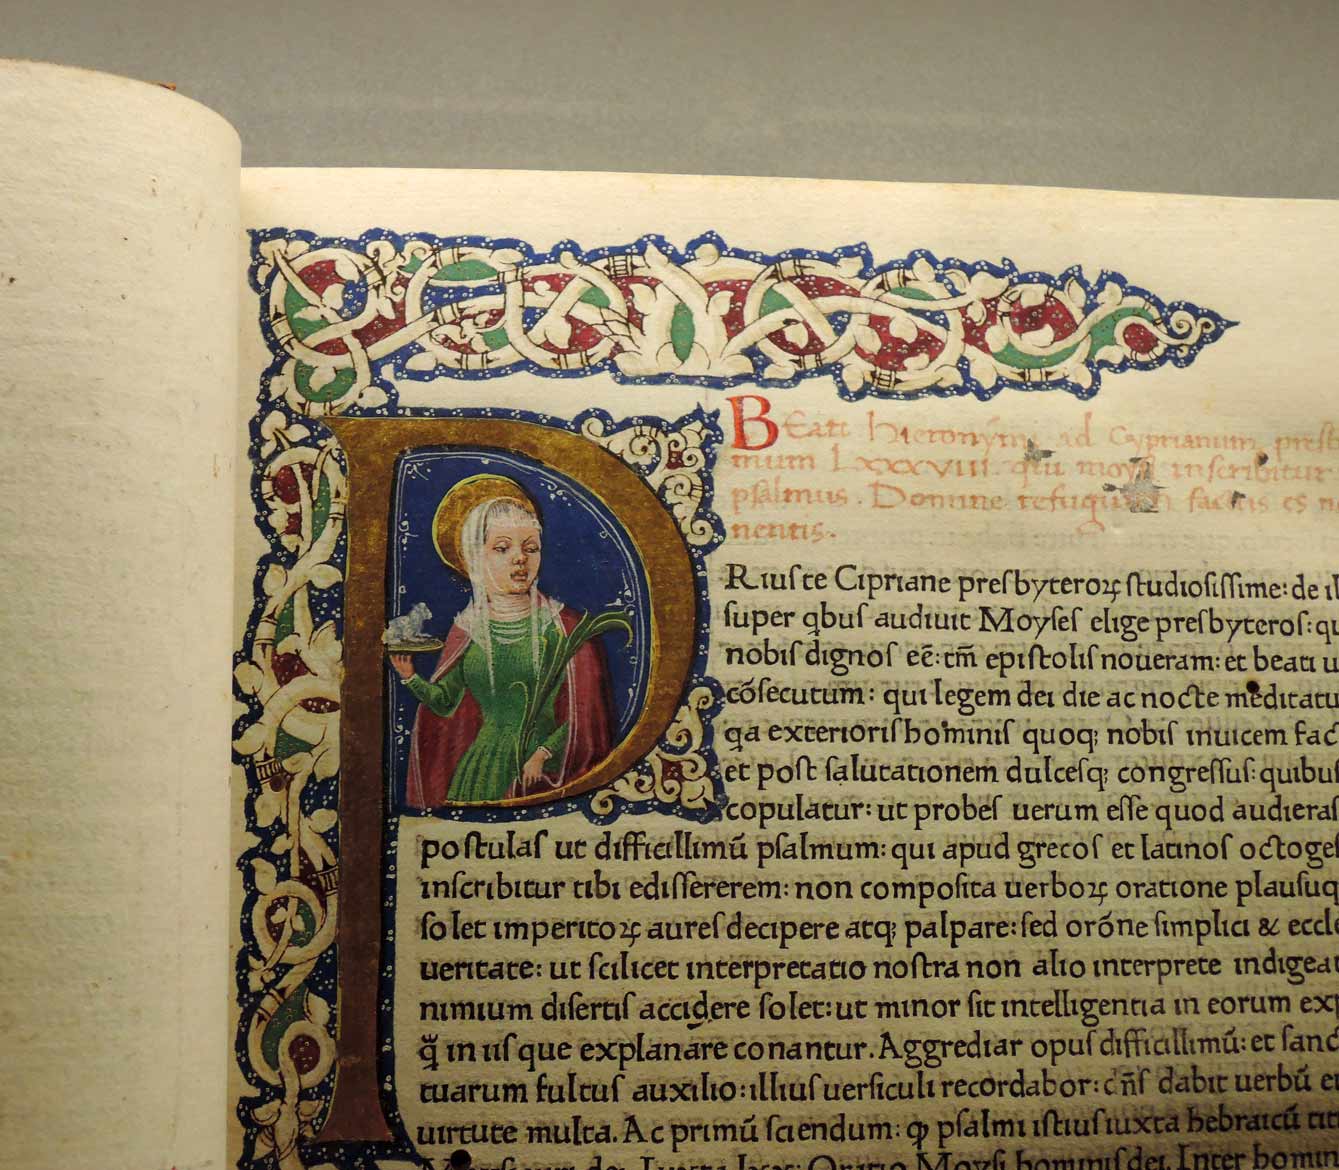 Beati hieronymi ad Cyprianum presb
mum Lxxxviiii qui moysi inscribitur
psalmus . Domine refugium factus es n
nentis.
P
Riuſ te Cipriane preſbyteroꝝ ſtudioſiſſime: de il
ſuper qbuſ audiuit Moyſeſ elige preſbyteroſ: qu
nobiſ dignoſ eē: tm̄ epiſtoliſ noueram: et beati u
cōſecutum: qui legem dei die ac nocte meditatu
qa exterioriſ hominiſ quoq; nobiſ inuicem fac
et poſt ſalutationem dulceſq; congreſſuſ: quibuſ
copulatur: ut probeſ uerum eſſe quod audieraſ
poſtulaſ ut difficillimū pſalmum: qui apud grecoſ et latinoſ octogeſ
inſcribitur tibi ediſſererem: non compoſita uerboꝝ oratione plauſuq
ſolet imperitoꝝ aureſ decipere atq; palpare: ſed orōne ſimplici & eccle
ueritate: ut ſcilicet interpretatio noſtra non alio interprete indigeat
nimium diſertiſ accidere ſolet: ut minor ſit intelligentia in eorum exp
q̄ in iiſ que explanare conantur. Aggrediar opuſ difficillimū: et ſanc
tuarum fultuſ auxilio: illiuſ uerſiculi recordabor: dn̄ſ dabit uerbū e
uirtute multa. Ac primū ſciendum: ꝙ pſalmi iſtiuſ iuxta hebraicū tit
dei Iuxta Oratio Moyſi hominiſ dei. Inter homin